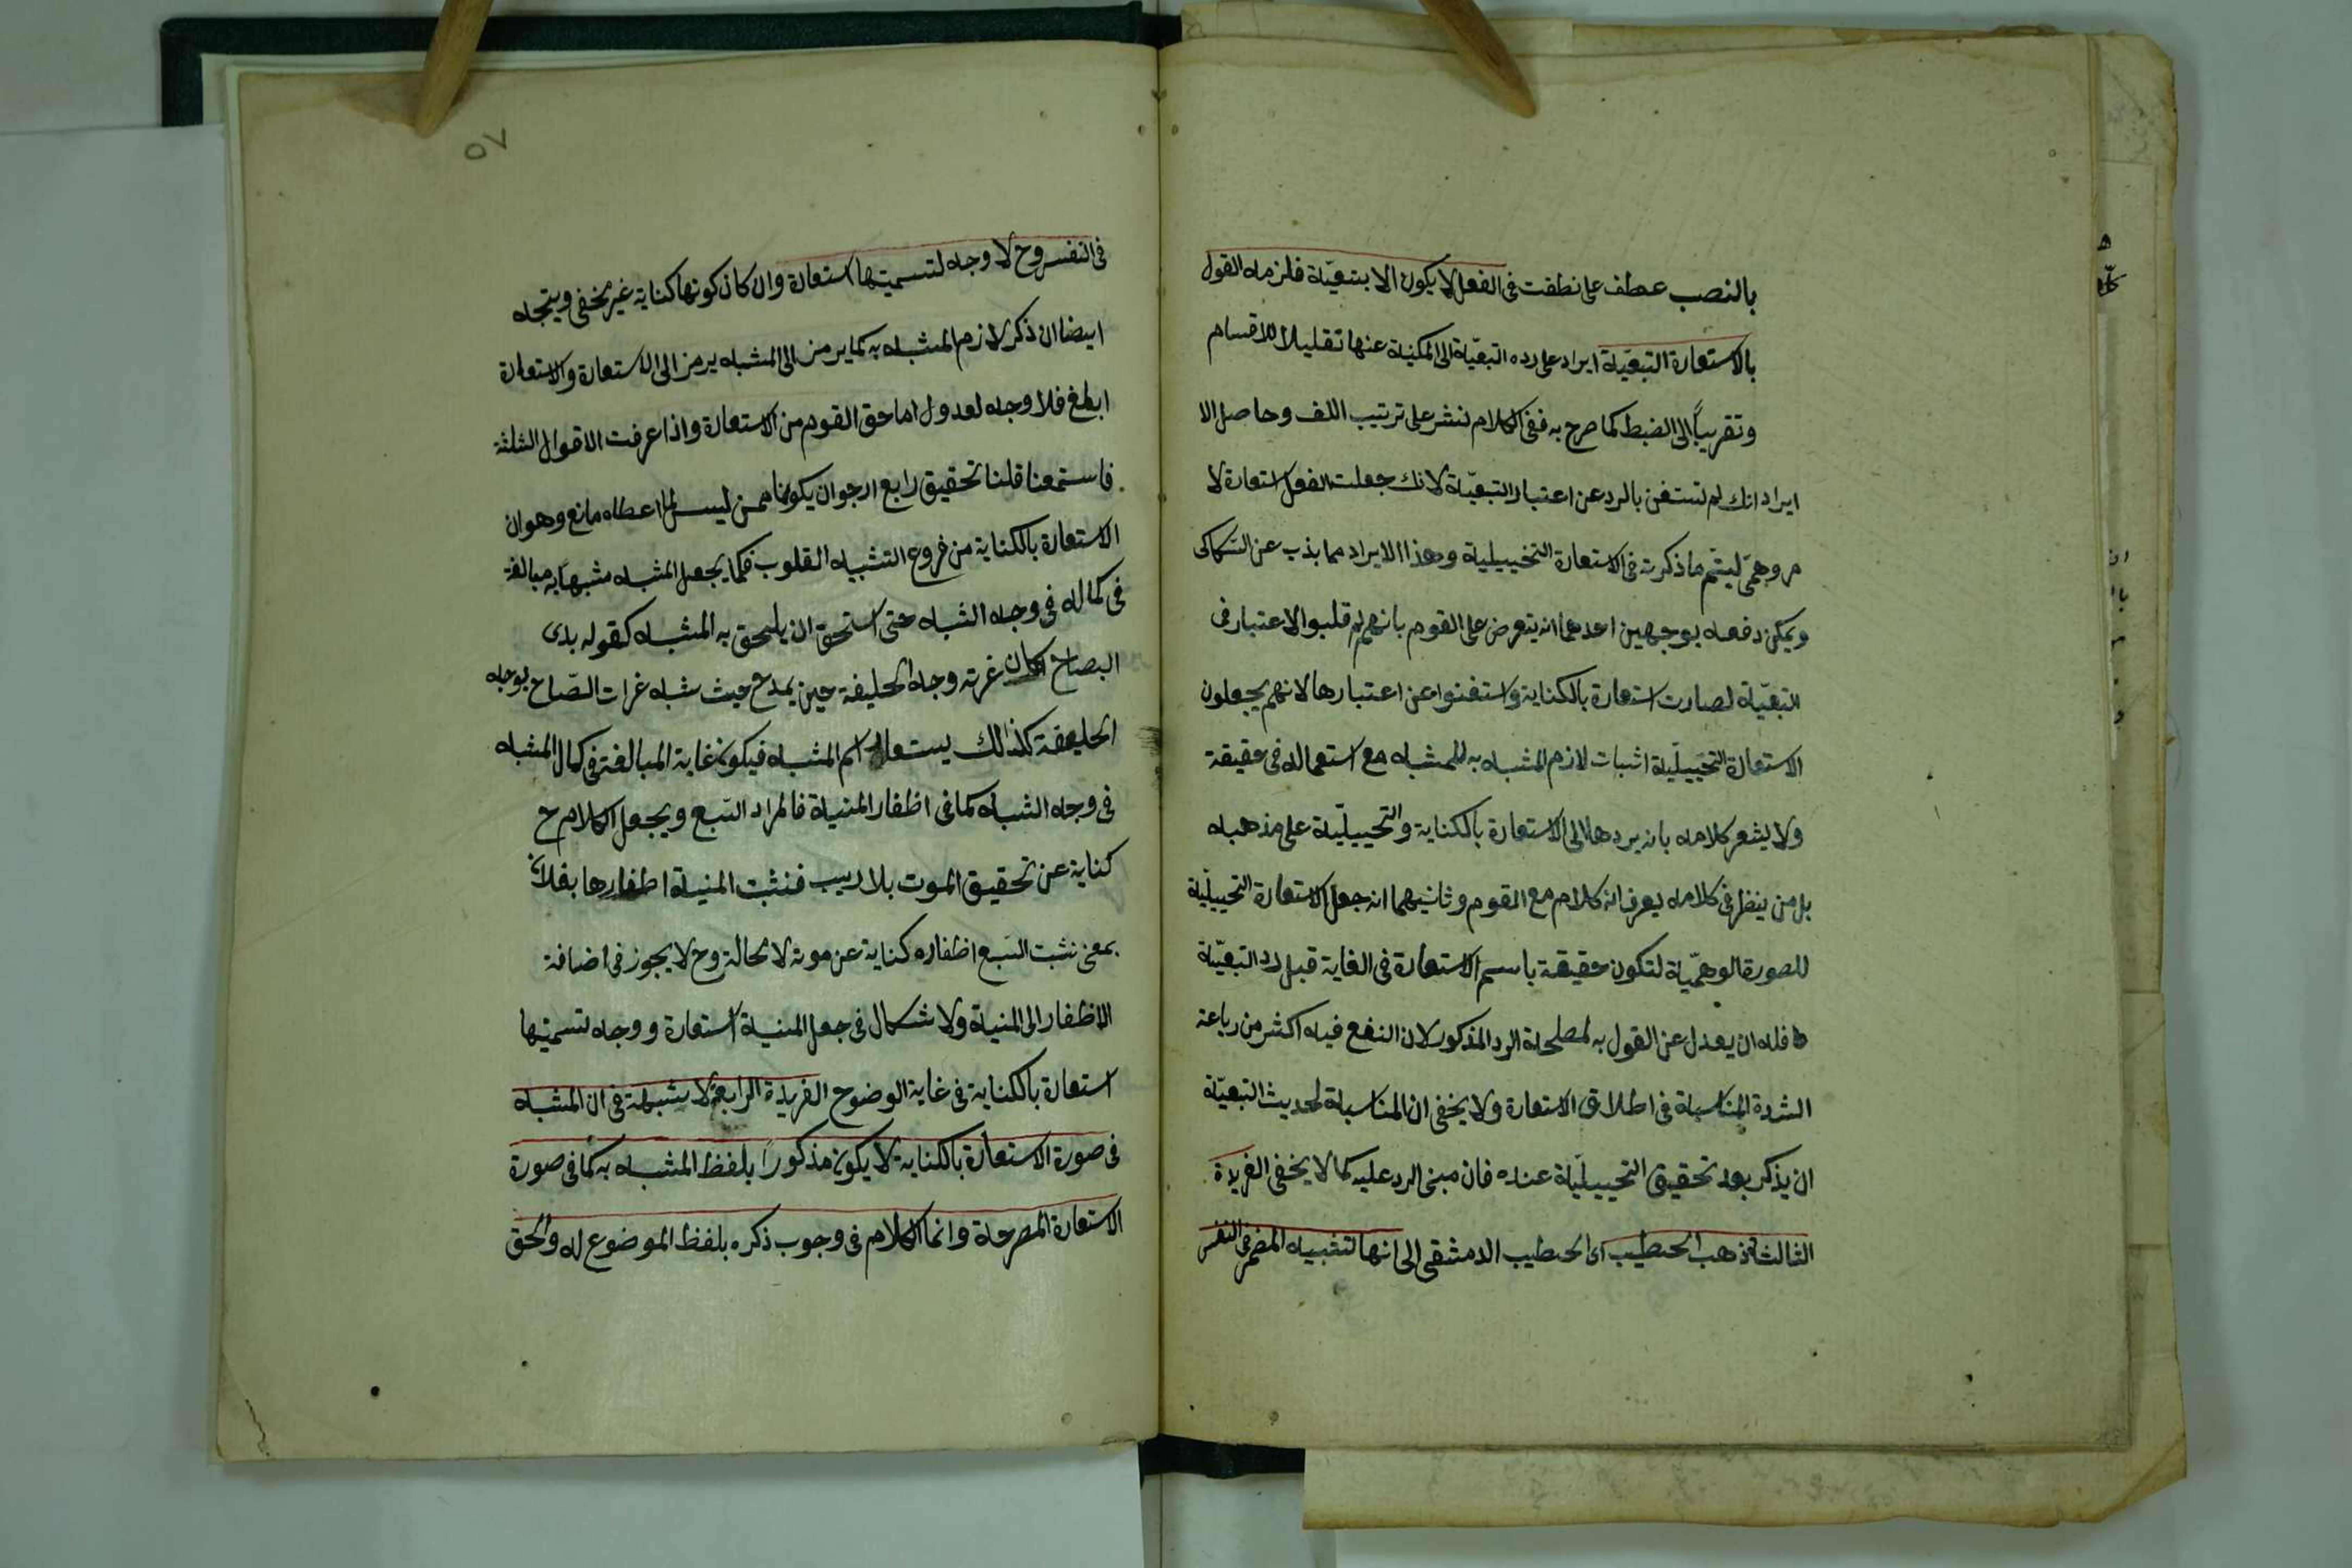 بالنصب عطف على نطقت في الفعل لا يكون الا بتبعيّة فلزمه القول
بالاستعارة التبعيّة ايراد على رده التبعيّة الى المكنية عنها تقليلا للاقسام
وتقريباً الى الضبط كما صرح به ففي الكلام نشر على ترتيب اللف وحاصل الا
ايراد انك لم تستغن بالرد عن اعتبار التبعيّة لانك جعلت الفعل استعارة لا
مر وهمىّ ليتم ما ذكرته في الاستعارة التخييلية وهذا الايراد مما يذب عن السّكاكى
ويمكن دفعه بوجهين احدهما انه يتعرض على القوم بانهم لو قلبوا الاعتبار في
التبعيّة لصارت استعارة بالكناية واستغنوا عن اعتبارها لانهم يجعلون
الاستعارة التخييليّة اثبات لازم المشبه به للمشبه مع استعماله في حقيقة
ولا يشعر كلامه بانه يردها الى الاستعارة بالكناية والتخييليّة على مذهبه
بل من ينظر في كلامه يعرف انه كلام مع القوم وثانيهما انه جعل الاستعارة التخييليّة
للصورة الوهميّة لتكون حقيقة باسم الاستعارة في الغاية قبل رد التبعيّة
فله ان يعدل عن القول به لمصلحة الرد المذكور لان النفع فيه اكثر من رباعة
الشدة المناسبة في اطلاق الاستعارة ولا يخفى ان المناسبة لحديث التبعيّة
ان يذكر بعد تحقيق التخييليّة عنده فان مبنى الرد عليه كما لا يخفى الفريدة
الثالثة ذهب الخطيب اى الخطيب الدمشقى الى انها لتشبيه المضمر في النفس
٥٧
في النفس وح لا وجه لتسميتها استعارة وان كان كونها كناية غير مخفى ويتجه
ايضا ان ذكر لازم المشبه به كما يرمز الى المشبه يرمز الى الاستعارة والاستعارة
ابلغ فلا وجه لعدول اما حق القوم من الاستعارة واذا عرفت الاقوال الثلثة
فاستمعنا قلنا تحقيق رابع ارجوان يكون ممن ليس لما اعطاه مانع وهو ان
الاستعارة بالكناية من فروع التشبيه القلوب فكما يجعل المشبه مشبها به مبالغة
في كماله في وجه الشبه حتى استحق ان يلحق به المشبه كقوله بدى
الصباح كان غرته وجه الخليفة حين يمدح حيث شبه غرات الصّباح بوجه
الخليفة كذلك يستعار اسم المشبه فيكون غاية المبالغة في كمال المشبه
في وجه الشبه كما في اظفار المنية فالمراد السّبع ويجعل الكلام ح
كناية عن تحقيق الموت بلا ريب فنشبت المنية اظفارها بفلان
بمعنى نشبت السّبع اظفاره كناية عن موته لا محالة وح لا يجوز في اضافة
الاظفار الى المنية ولا اشكال في جعل المنية استعارة ووجه لتسميتها
استعارة بالكناية في غاية الوضوح الفريدة الرابعة لا شبهة في ان المشبه
في صورة الاستعارة بالكناية لا يكون مذكوراً بلفظ المشبه به كما في صورة
الاستعارة المصرحة وانما الكلام في وجوب ذكره بلفظ الموضوع له والحق